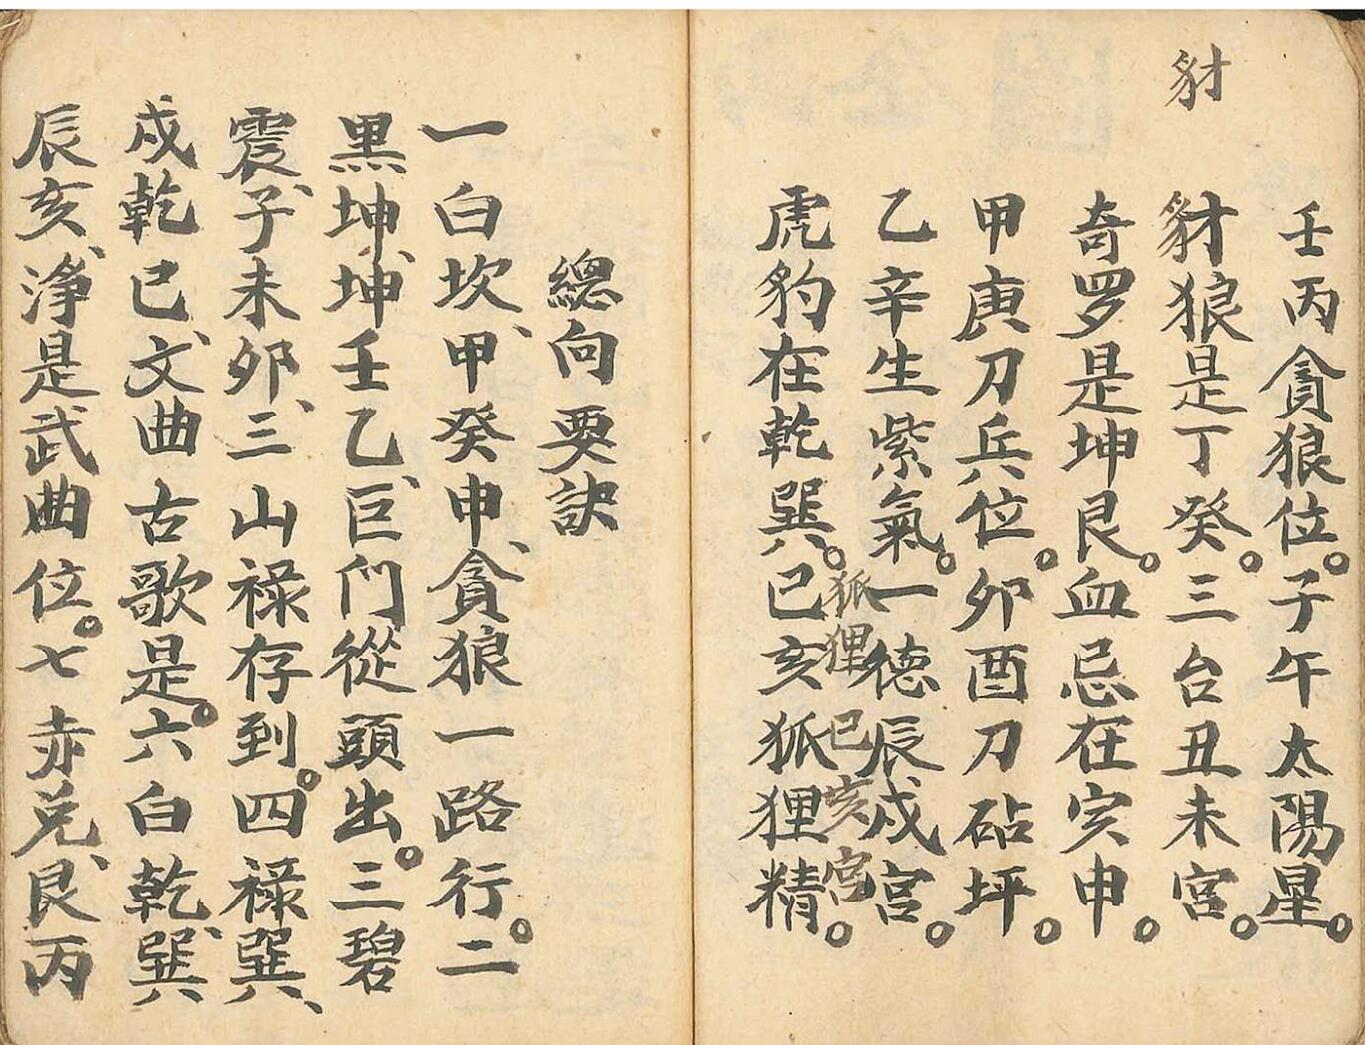 豺
壬丙貪狼位。子午太陽星。
豺狼是丁癸。三台丑未宮。
奇罗是坤艮。血忌在寅申。
甲庚刀兵位。卯酉刀砧坪。
乙辛生紫氣。一德辰戌宮。
狐狸巳亥宮
虎豹在乾巽。己亥狐狸精。
總向要訣
一白坎、甲癸申、貪狼一路行。二
黑坤、坤壬乙、巨門從頭出。三碧
震、子未卯、三山祿存到。四祿巽、
戌乾巳、文曲古歌是。六白乾、巽
辰亥、淨是武曲位。七赤兌、艮丙